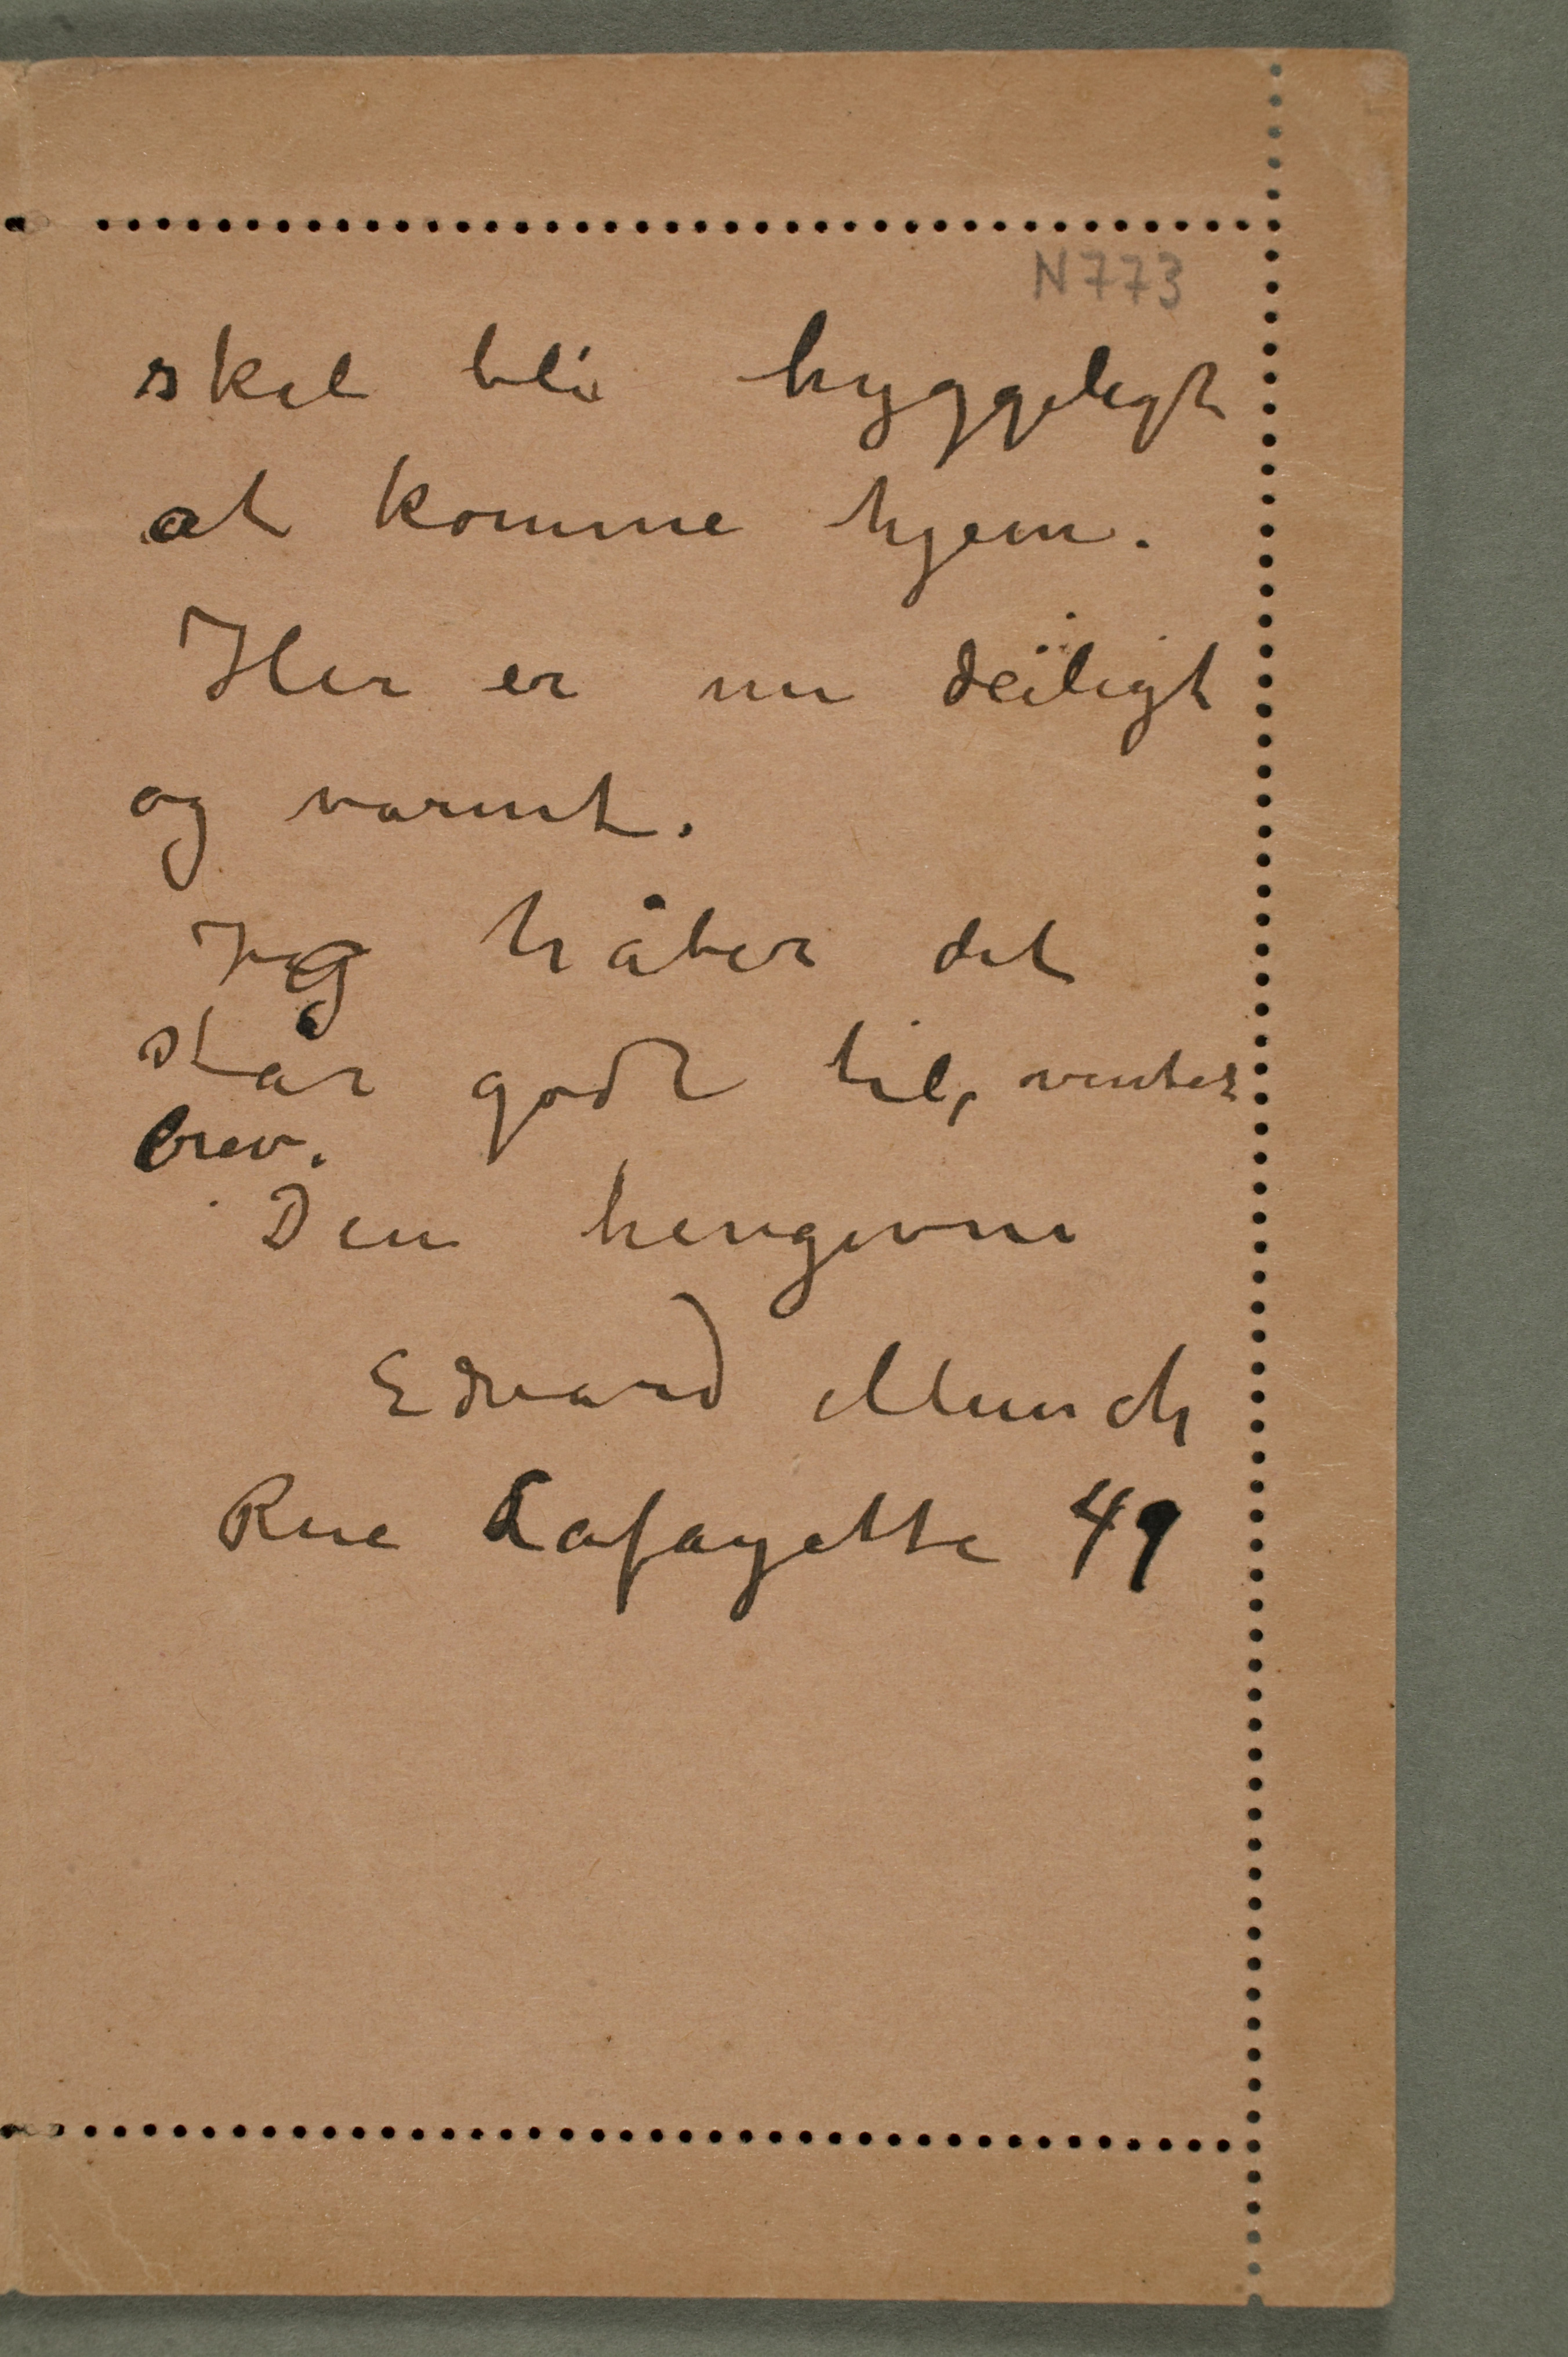 N773
skal bli hyggeligt
at komme hjem.
Her er nu deiligt
og varmt.
Jeg håber det
står godt til, venter
brev.
Din hengivne
Edvard Munch
Rue Lafayette 49